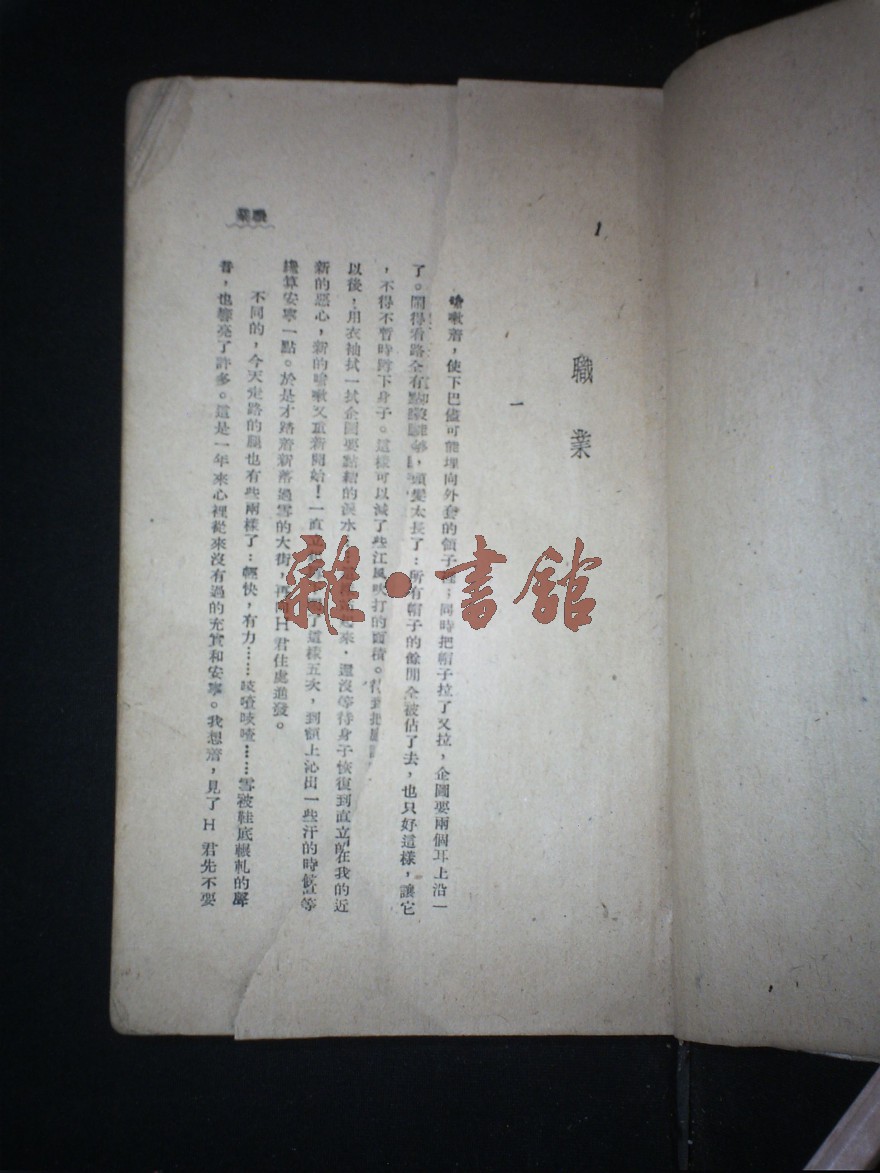 1
職業
一
嗆嗽着，使下巴儘可能埋向外套的領子裡；同時把帽子拉了又拉，企圖要兩個耳上沿一
了。鬧得看路全有點，頭髮太長了：所有帽子的餘閒全被佔了去，也只好這樣，讓它
，不得不暫時蹲下身子。這樣可以減了些江風吹打的面積。待到把
以後，用衣袖拭一拭企圖要點綴的淚水，起來，還沒等待身子恢復到直立所在我的近
新的惡心，新的嗆嗽又重新開始！一直了這樣五次，到額上沁出一些汗的時候等
纔算安寧一點。於是才踏着新落過雪的大街，再向H君住處進發。
不同的，今天走路的腿也有些兩樣了：輕快，有力……吱喳吱喳……雪被鞋底輾軋的聲
音，也響亮了許多。這是一年來心裡從來沒有過的充實和安寧。我想着，見了 H 君先不要
職業
雜·書館